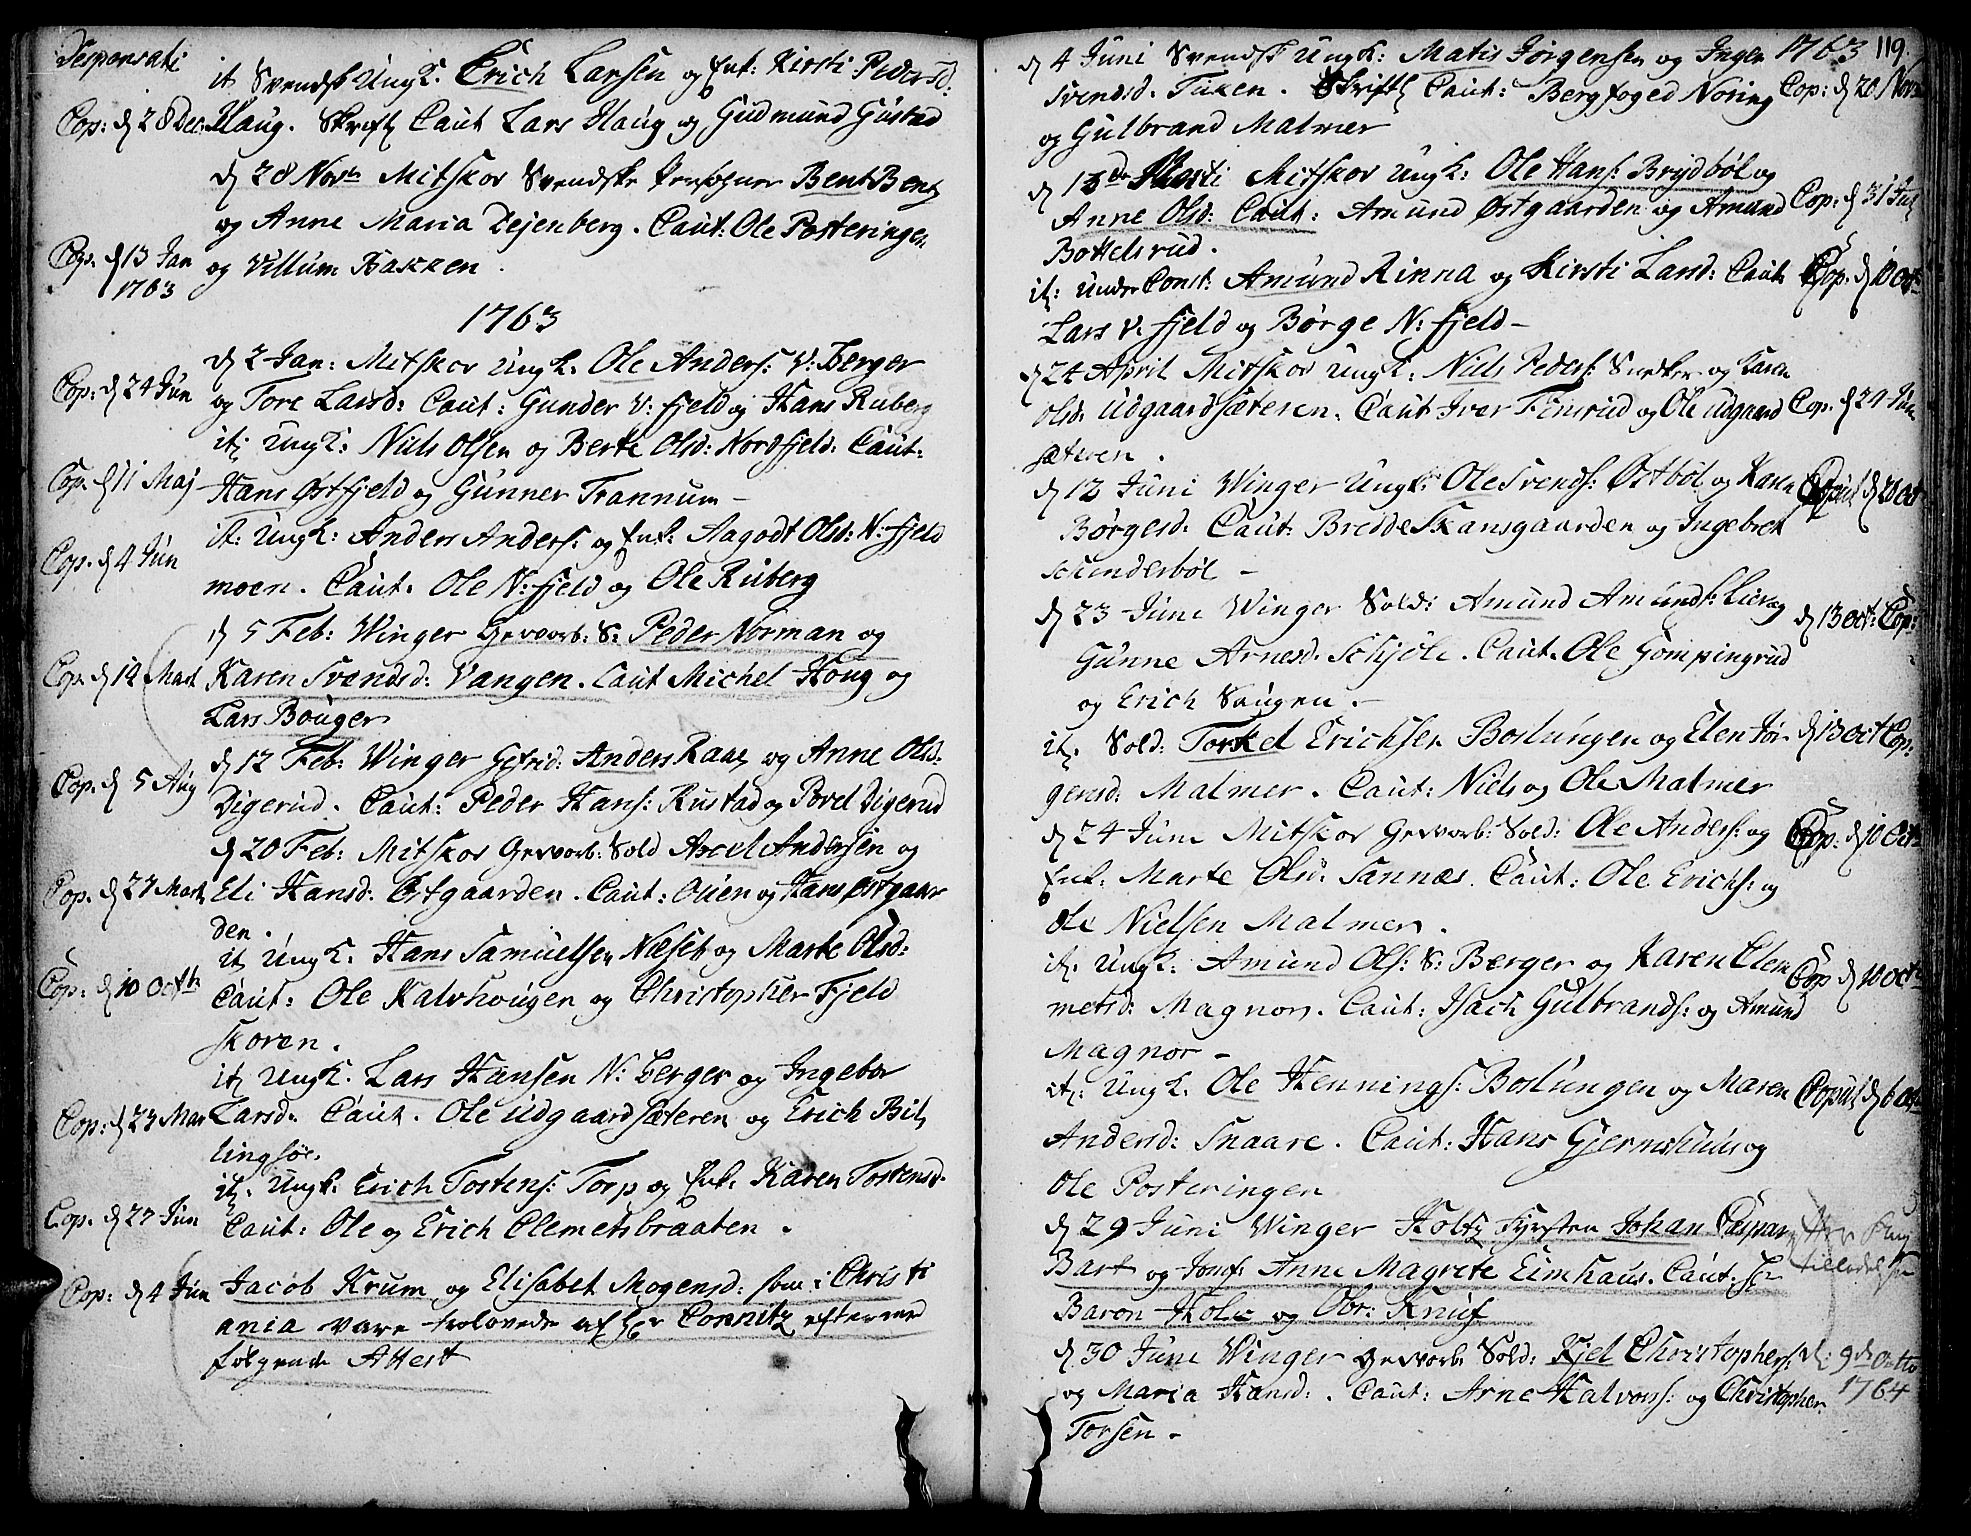 Desponsati
it Svendsk Ungk. Erich Larsen og Enk: Kirsti Pedersd:
Cop: d 28 Dec: Haug. Skriftl Caut Lars Haug og Gudmund Gustad
d 28 Novr Mitskov Svendske Personer Bent Bentz
og Anne Maria Zejenberg. Caut: Ole Posteringen
Cop. d 13 Jan og Villum Bakken.
1763
1763
d 2 Jan: Mitskov Ungk. Ole Anders: V: Berger
Cop: d 24 Jun og Tore Larsd: Caut: Gunder V: fjeld og Hans Ruberg
it: Ungk: Niels Olsen og Berte Olsd: Nordfjeld: Caut:
Cop. d 11 Maj Hans Østfjeld og Gunner Trannum –
it: Ungk: Anders Anders: og Enk: Aagodt Olsd: N: fjeld
Cop. d 4 Jun moen. Caut. Ole N: fjeld og Ole Ruberg
d 5 Feb: Winger Gevorb: S: Peder Norman og
Cop. d 19 Mart Karen Svendsd: Vangen. Caut Michel Houg og
Lars Bouger
d 12 Feb: Winger Gefrid: Anders Raae og Anne Olsd:
Cop. d 5 Aug Digerud. Caut: Peder Hans: Rustad og Povel Digerud
d 20 Feb: Mitskov Gevorb: Sold Axcel Andersen og
Cop. d 27 Mart Eli Hansd: Østgaarden. Caut: Ouen og Hans Østgaar
den.
it Ungk. Hans Samuelsen Næset og Marte Olsd:
Cop: d 10 Octbr Caut: Ole Kalvhougen og Christopher Fjeld
skoven.
it Ungk. Lars Hansen N: Berger og Ingebor
Cop: d 27 Mar Larsd. Caut. Ole Udgaardsæteren og Erich Bil
lingsøe.
it. Ungk: Erich Tostens: Torp og Enk: Karen Tostensd.
Cop. d 27 Jun Caut: Ole og Erich Clemetsbraaten.
Cop: d 4 Jun Jacob Krum og Elisabet Mogensd: som i Christi
ania vare trolovede af Hr Coppnitz efter med
følgende Attest
1763 119.
d 4 Juni Svendsk Ungk: Matis Jørgensen og Inger
Svendsd. Tuken. Skriftl Caut: Bergfoged Noring Cop: d 20 Nov
og Gulbrand Malmer
d 13de Marti Mitskov Ungk: Ole Hans: Brydbøl og
Anne Olsd: Caut: Amund Østgaarden og Amund Cop: d 31 Jul
Bottelsrud.
it: Under Const: Amund Rinna og Kirsti Larsd: Caut Cop: d 10 Oct
Lars V. fjeld og Børge N: fjeld –
d 24 April Mitskov Ungk: Niels Peders: Snedker og Karen
Olsd. Udgaardsæteren. Caut Iver Finsrud og Ole Udgaard Cop. d 24 Jun
sæteren.
d 12 Juni Winger Ungk: Ole Svends: Østbøl og Karen Copul d 28 Oct
Børgesd: Caut: Bredde Skansgaarden og Ingebret
Sunderbøl –
d 23 Juni Winger Sold: Amund Amunds: Lier og d 13 Oct: Cop:
Gunne Arnesd. Schjøle. Caut. Ole Gompingrud
og Erich Saugen. –
it. Sold: Torkel Erichsen Boslungen og Elen Jør d 13 Oct Cop:
gensd: Malmer. Caut: Niels og Ole Malmer
d 24 Juni Mitskov Gevorb: Sold: Ole Anders: og Cop: d 10 Oct
Enk: Marte Olsd: Sannæs. Caut: Ole Erichs: og
Ole Nielsen Malmer.
it. Ungk: Amund Ols: S: Berger og Karen Clem Cop d 10 Oct
metsd: Magnor. Caut: Isach Gulbrands: og Amund
Magnor –
it: Ungk. Ole Hennings: Boslungen og Maren Copul d 6
Andersd: Snaare. Caut: Hans Gjermshuus og
Ole Posteringen
d 29 Juni Winger Holtz Fyrsten Johan Caspar
Bart og Jomf: Anne Magrete Eimhaus. Caut: Hr tilladelse
Baron Hole og Obr: Knuf
d 30 Juni Winger Gevorb: Sold: Kjel Christophers d: 9de Octo
og Maria Hansd:. Caut: Arne Halvors: og Christopher 1764
Torsen –